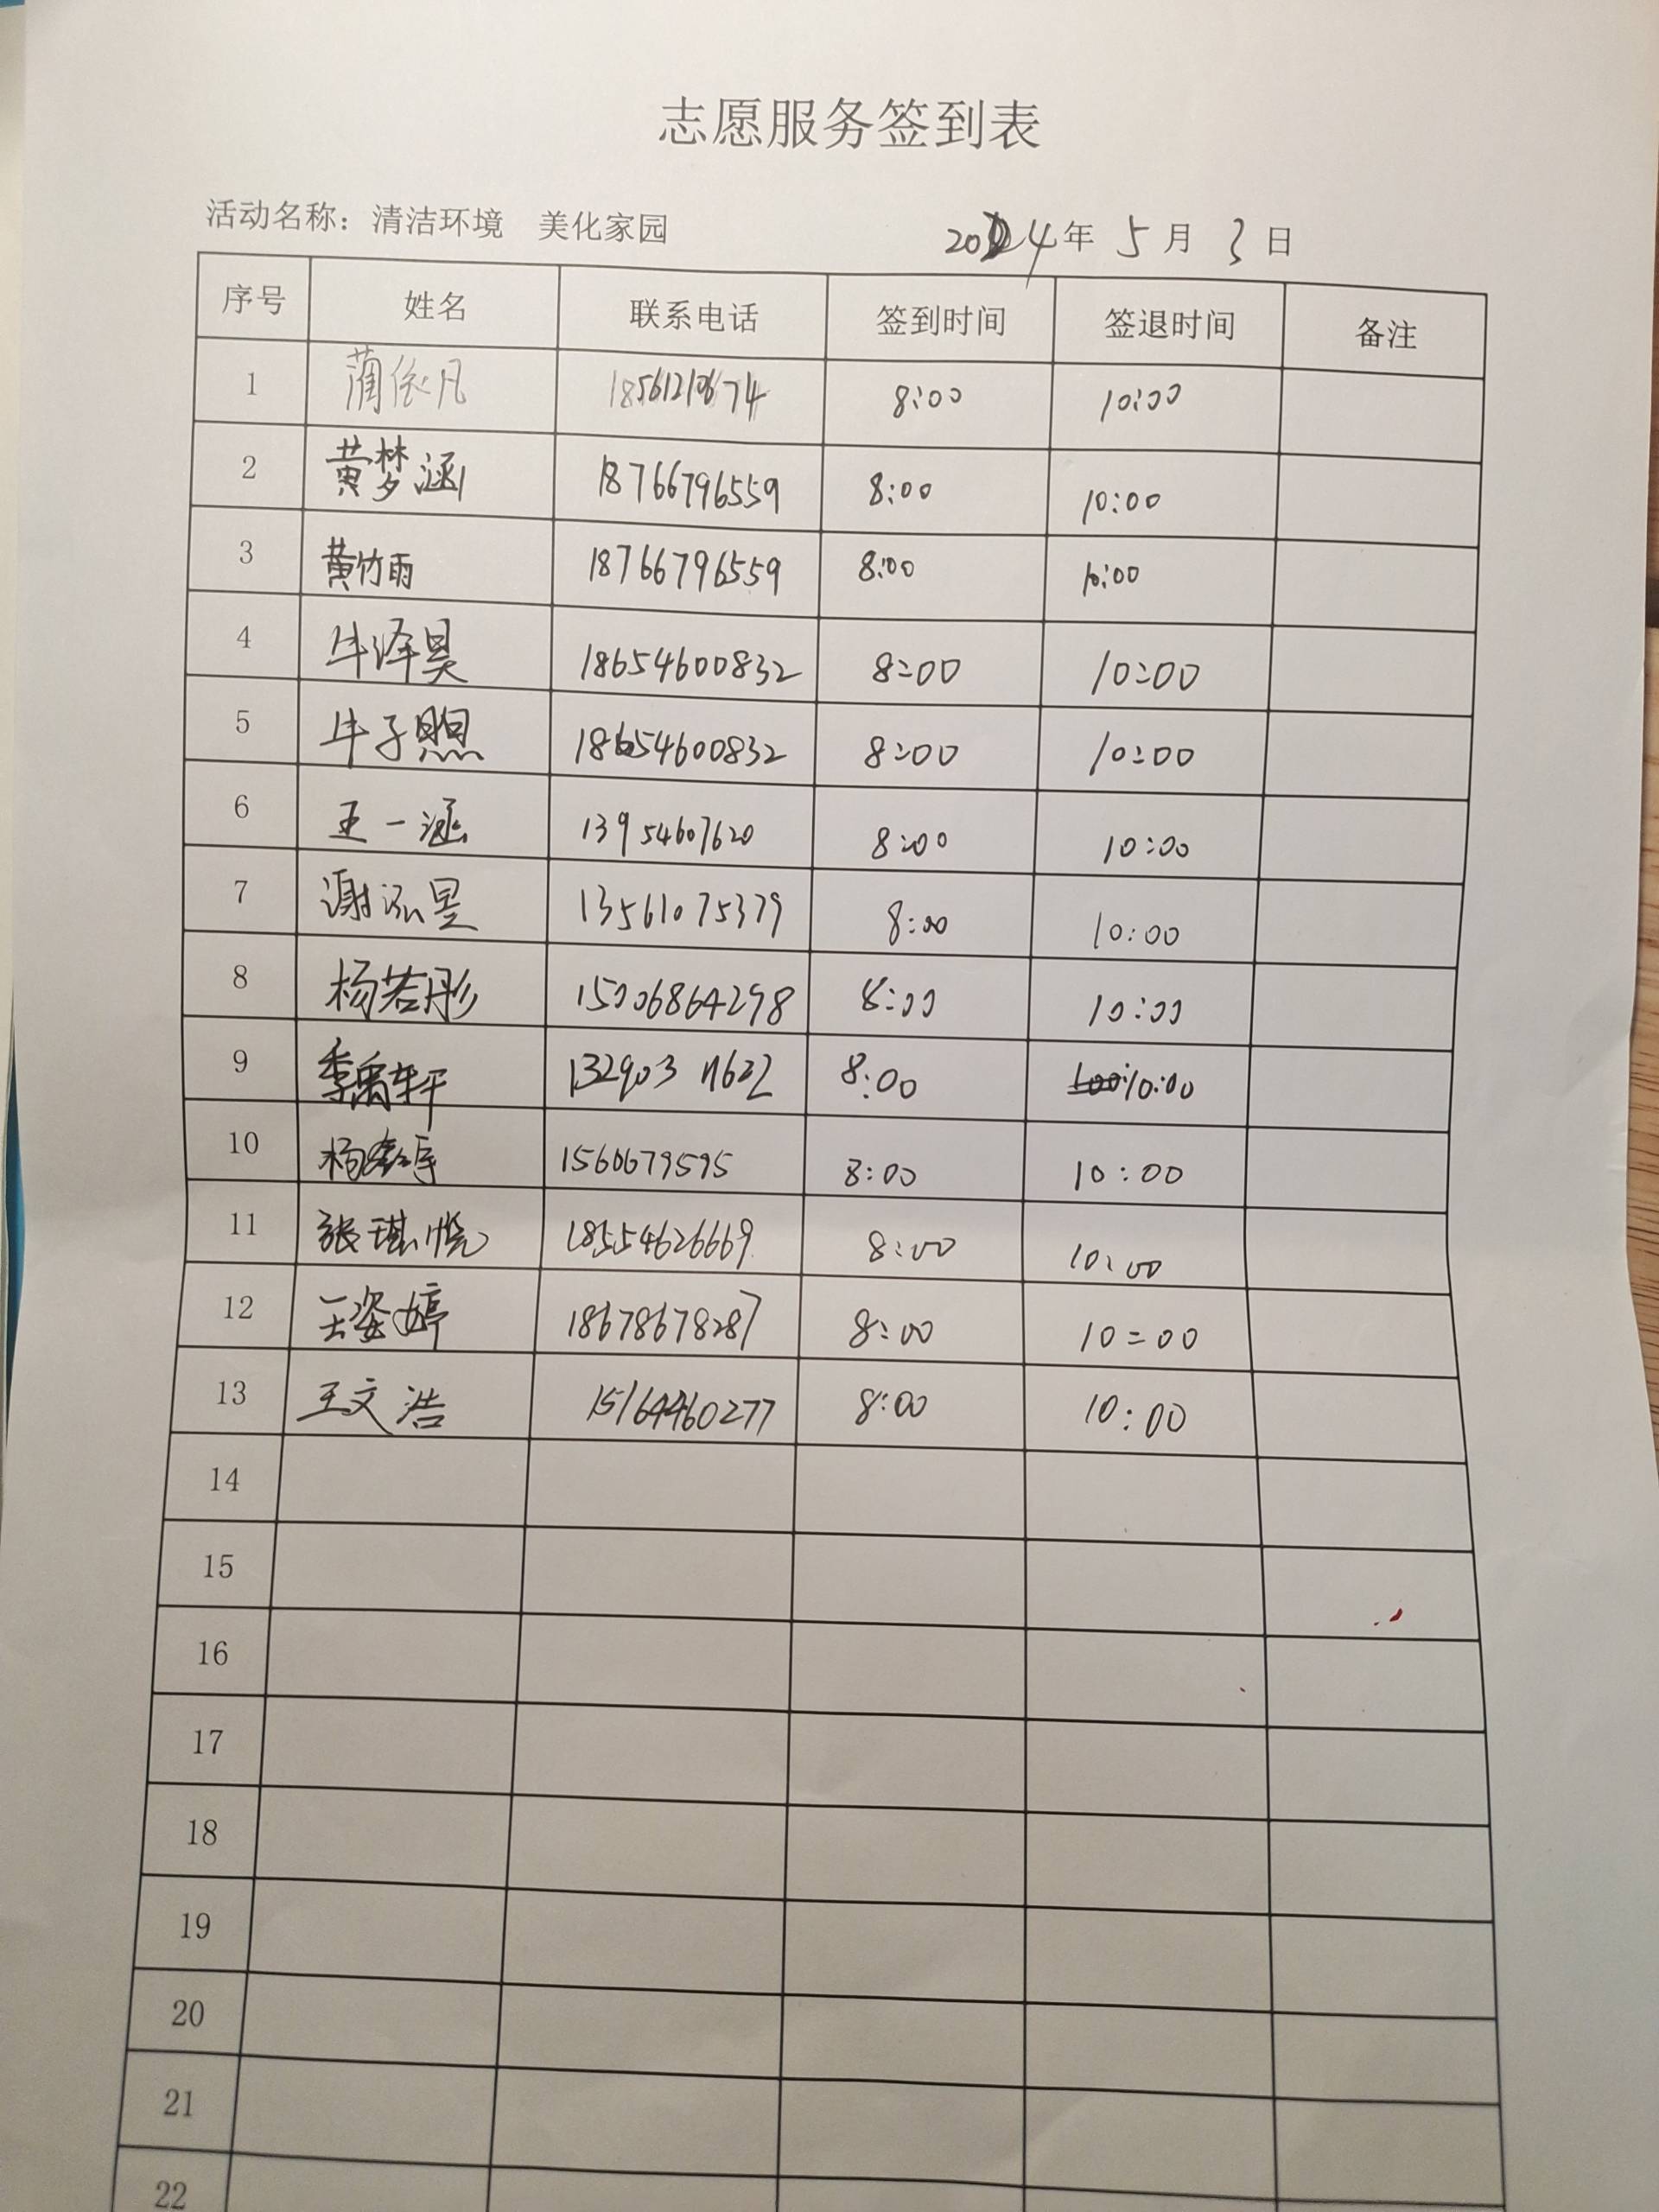 志愿服务签到表
活动名称：清洁环境 美化家园 2024年5月3日
序号 姓名 联系电话 签到时间 签退时间 备注
1 蔺依凡 18561210674 8:00 10:00
2 黄梦涵 18766796559 8:00 10:00
3 黄竹雨 18766796559 8:00 10:00
4 牛泽昊 18654600832 8:00 10:00
5 牛子煦 18654600832 8:00 10:00
6 王一涵 13954607620 8:00 10:00
7 谢泓昱 13561075379 8:00 10:00
8 杨若彤 15006864298 8:00 10:00
9 季禹轩 13290311622 8:00 10:00
10 杨 1560679595 8:00 10:00
11 张琪悦 18554626669 8:00 10:00
12 王姿婷 18678678287 8:00 10:00
13 王文浩 15164460277 8:00 10:00
14
15
16
17
18
19
20
21
22